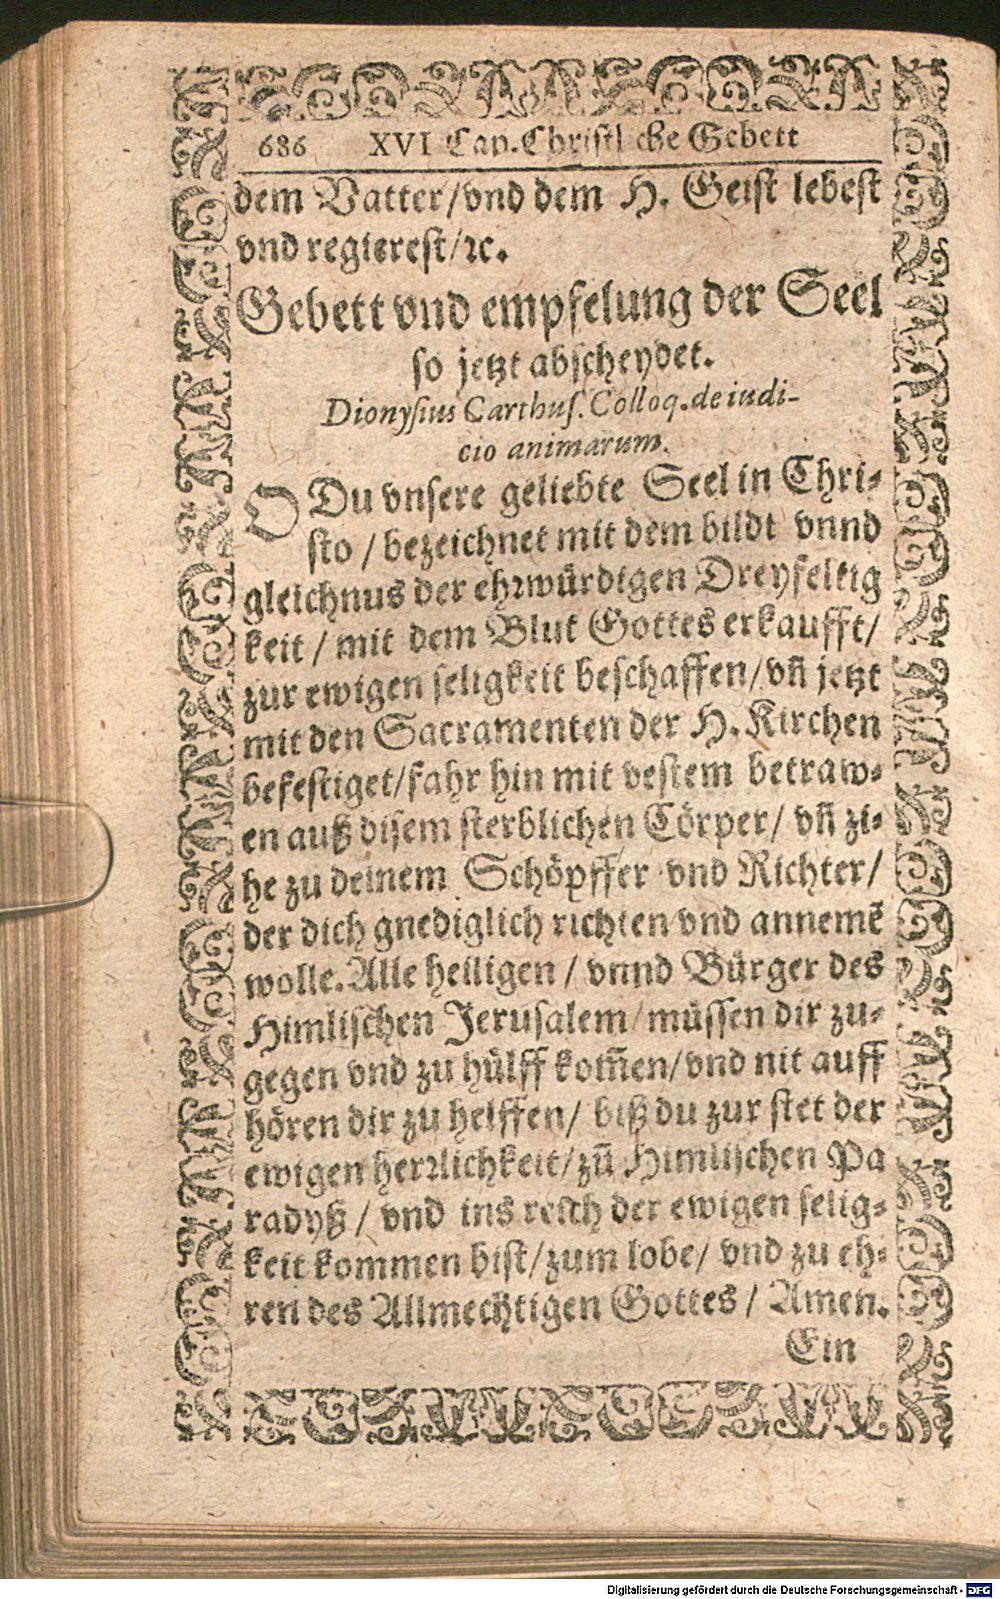 686 XVI Cap. Christlche Gebett
dem Vatter/vnd dem H. Geist lebest
vnd regierest/ꝛc.
Gebett vnd empfelung der Seel
so jetzt abscheydet.
Dionysius Carthus. Colloq. de iudi-
cio animarum.
O Du vnsere geliebte Seel in Chri-
sto / bezeichnet mit dem bildt vnnd
gleichnus der ehꝛwürdigen Dreyfeltig
keit / mit dem Blut Gottes erkaufft/
zur ewigen seligkeit beschaffen/vñ jetzt
mit den Sacramenten der H. Kirchen
befestiget/fahr hin mit vestem betraw-
en auß disem sterblichen Cörper/ vñ zi-
he zu deinem Schöpffer vnd Richter/
der dich gnediglich richten vnd annemẽ
wolle. Alle heiligen / vnnd Bürger des
Himlischen Jerusalem/müssen dir zu-
gegen vnd zu hülff kom̃en/vnd nit auff
hören dir zu helffen/ biß du zur stet der
ewigen herꝛlichkeit/zũ Himlischen Pa
radyß / vnd ins reich der ewigen selig-
keit kommen bist/zum lobe/ vnd zu eh-
ren des Allmechtigen Gottes / Amen.
Ein
Digitalisierung gefördert durch die Deutsche Forschungsgemeinschaft - DFG